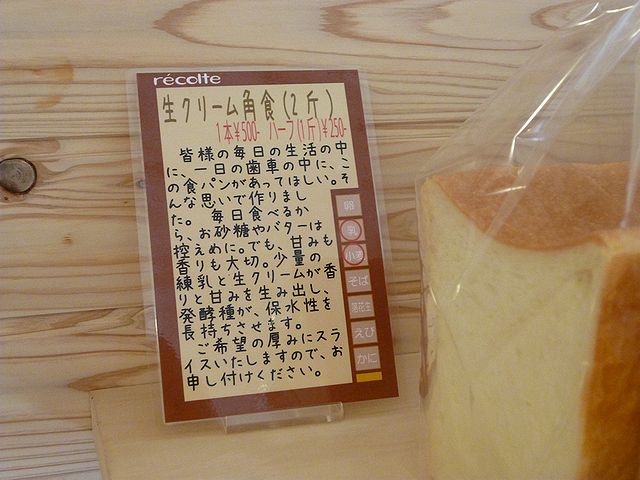 récolte
生クリーム角食(2斤)
1本¥500- ハーフ(1斤)¥250-
皆様の毎日の生活の中
に、一日の歯車の中に、こ
の食パンがあってほしい。そ
んな思いで作りまし
た。 毎日食べるか
ら、お砂糖やバターは
控えめに。でも、甘みも
香りも大切。少量の
練乳と生クリームが香
りと甘みを生み出し、
発酵種が、保水性を
長持ちさせます。
ご希望の厚みにスラ
イスいたしますので、お
申し付けください。
卵
乳
小麦
そば
落花生
えび
かに